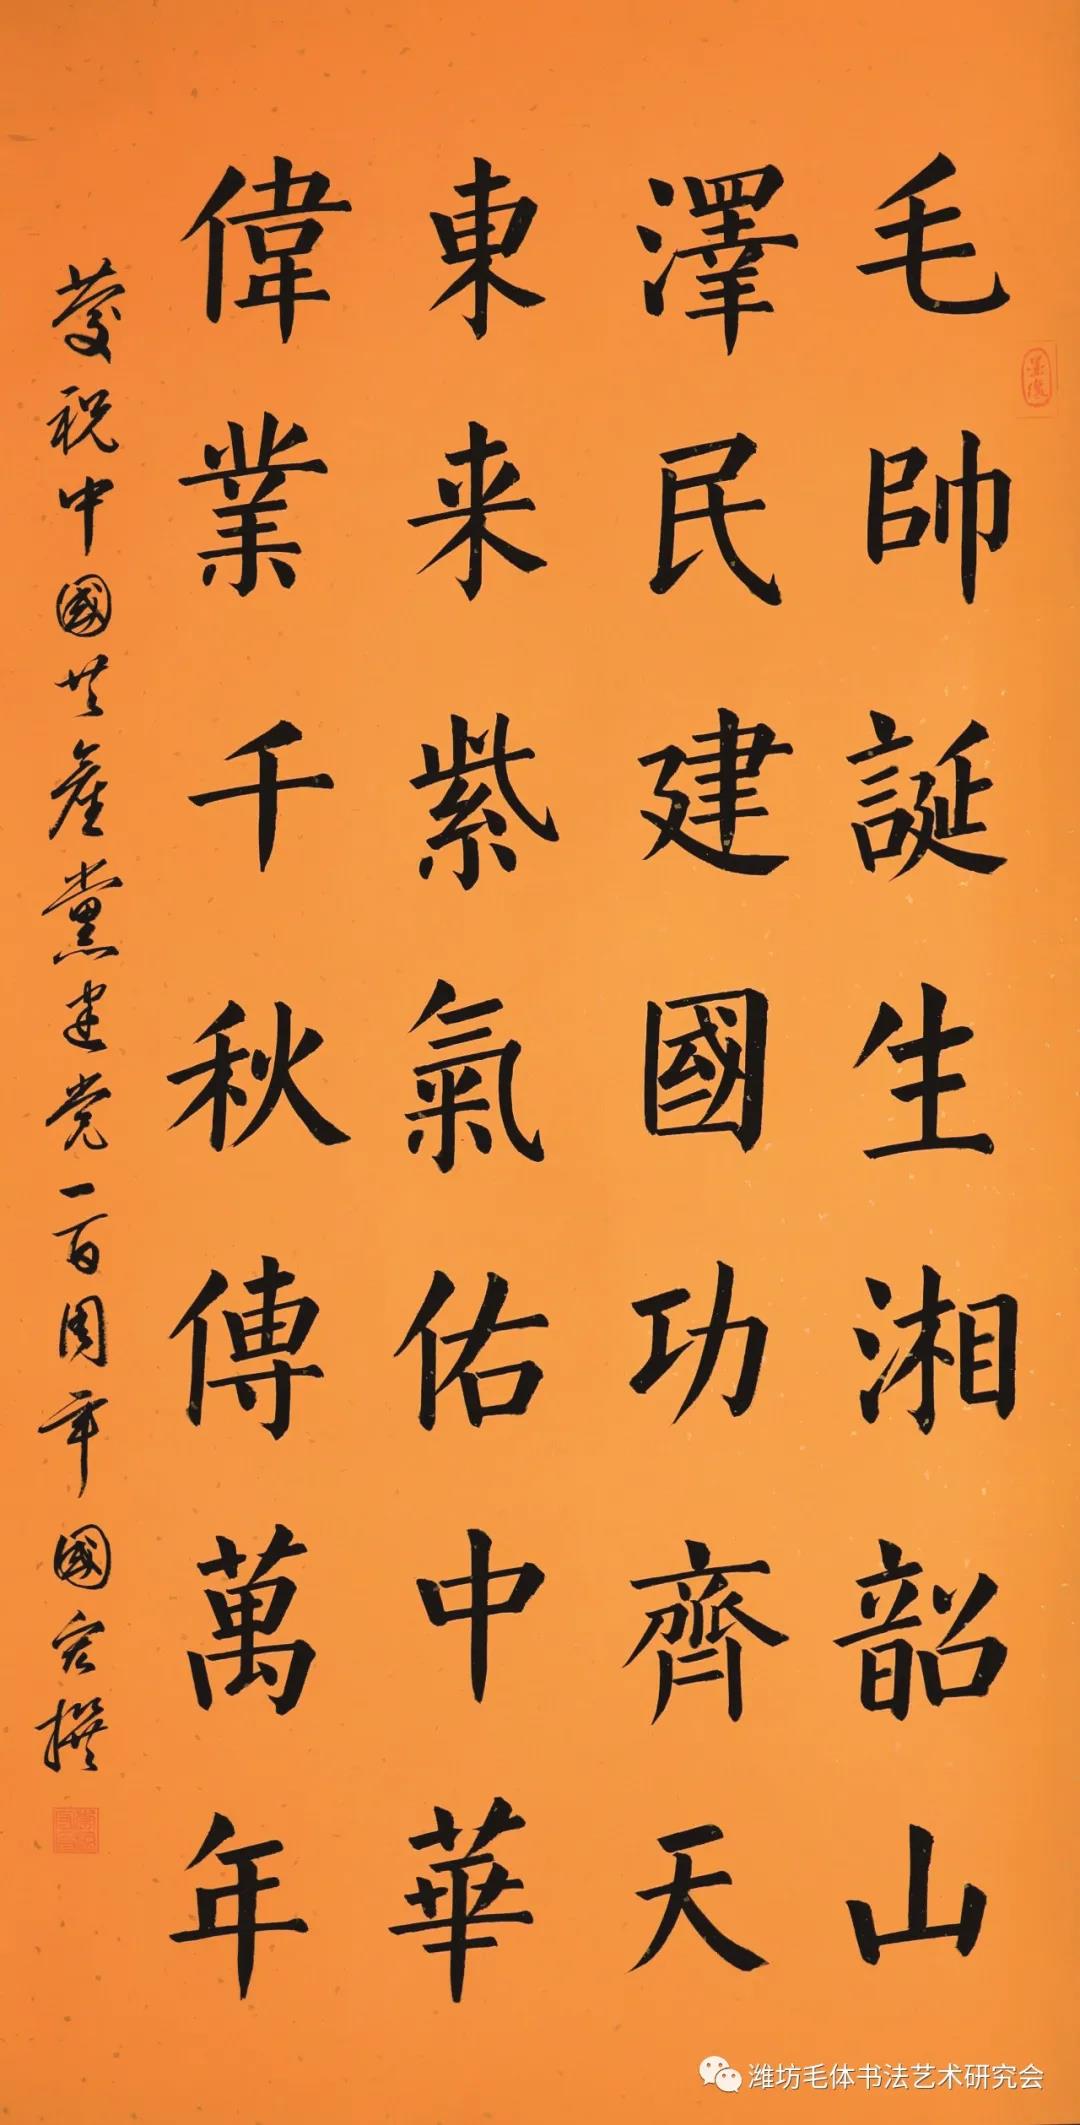 毛帥誕生湘韶山
澤民建國功齊天
東来紫氣佑中華
偉業千秋傳萬年
慶祝中國共產黨建党一百周年 國宏撰
墨緣
潍坊毛体书法艺术研究会